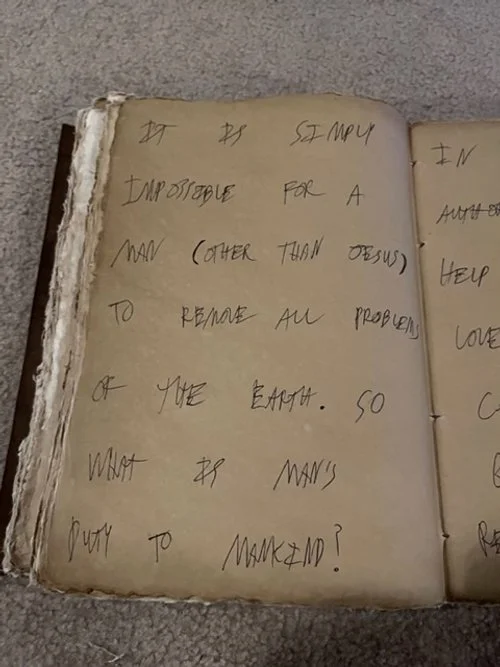 IT IS SIMPLY
IMPOSSIBLE FOR A
MAN (OTHER THAN JESUS)
TO REMOVE ALL PROBLEMS
OF THE EARTH. SO
WHAT IS MAN'S
DUTY TO MANKIND?
IN
HELP
LOVE